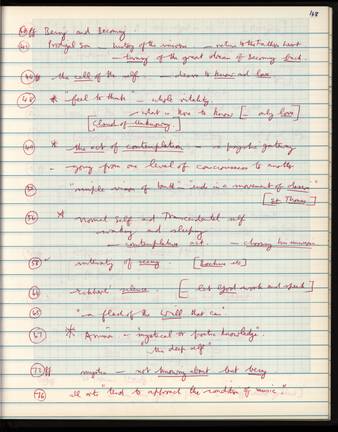 48
ff Being and Becoming
41 Prodigal Son — history of the universe — return to the Father's heart
— history of the great dream of becoming back.
44 the call of the self. — desire to know and love
48 * "feel to think" — whole vitality.
what is here to know [— only love]
[Cloud of Unknowing]
49 * the act of contemplation — a psychic gateway
- going from one level of consciousness to another
52 "simple vision of truth" — "ends in a movement of desire"
[St Thomas]
56 * Normal Self and Transcendental self
waking and sleeping
— contemplative act. —
58 intensity of seeing. [ etc]
64 Eckhart silence. [— let God work and speak]
65 "a glad of the will that can"
67 * Anima - "mystical or poetic knowledge".
"the deep self"
73ff mystic — not knowing about but being
76 all arts "tend to approach the condition of music".